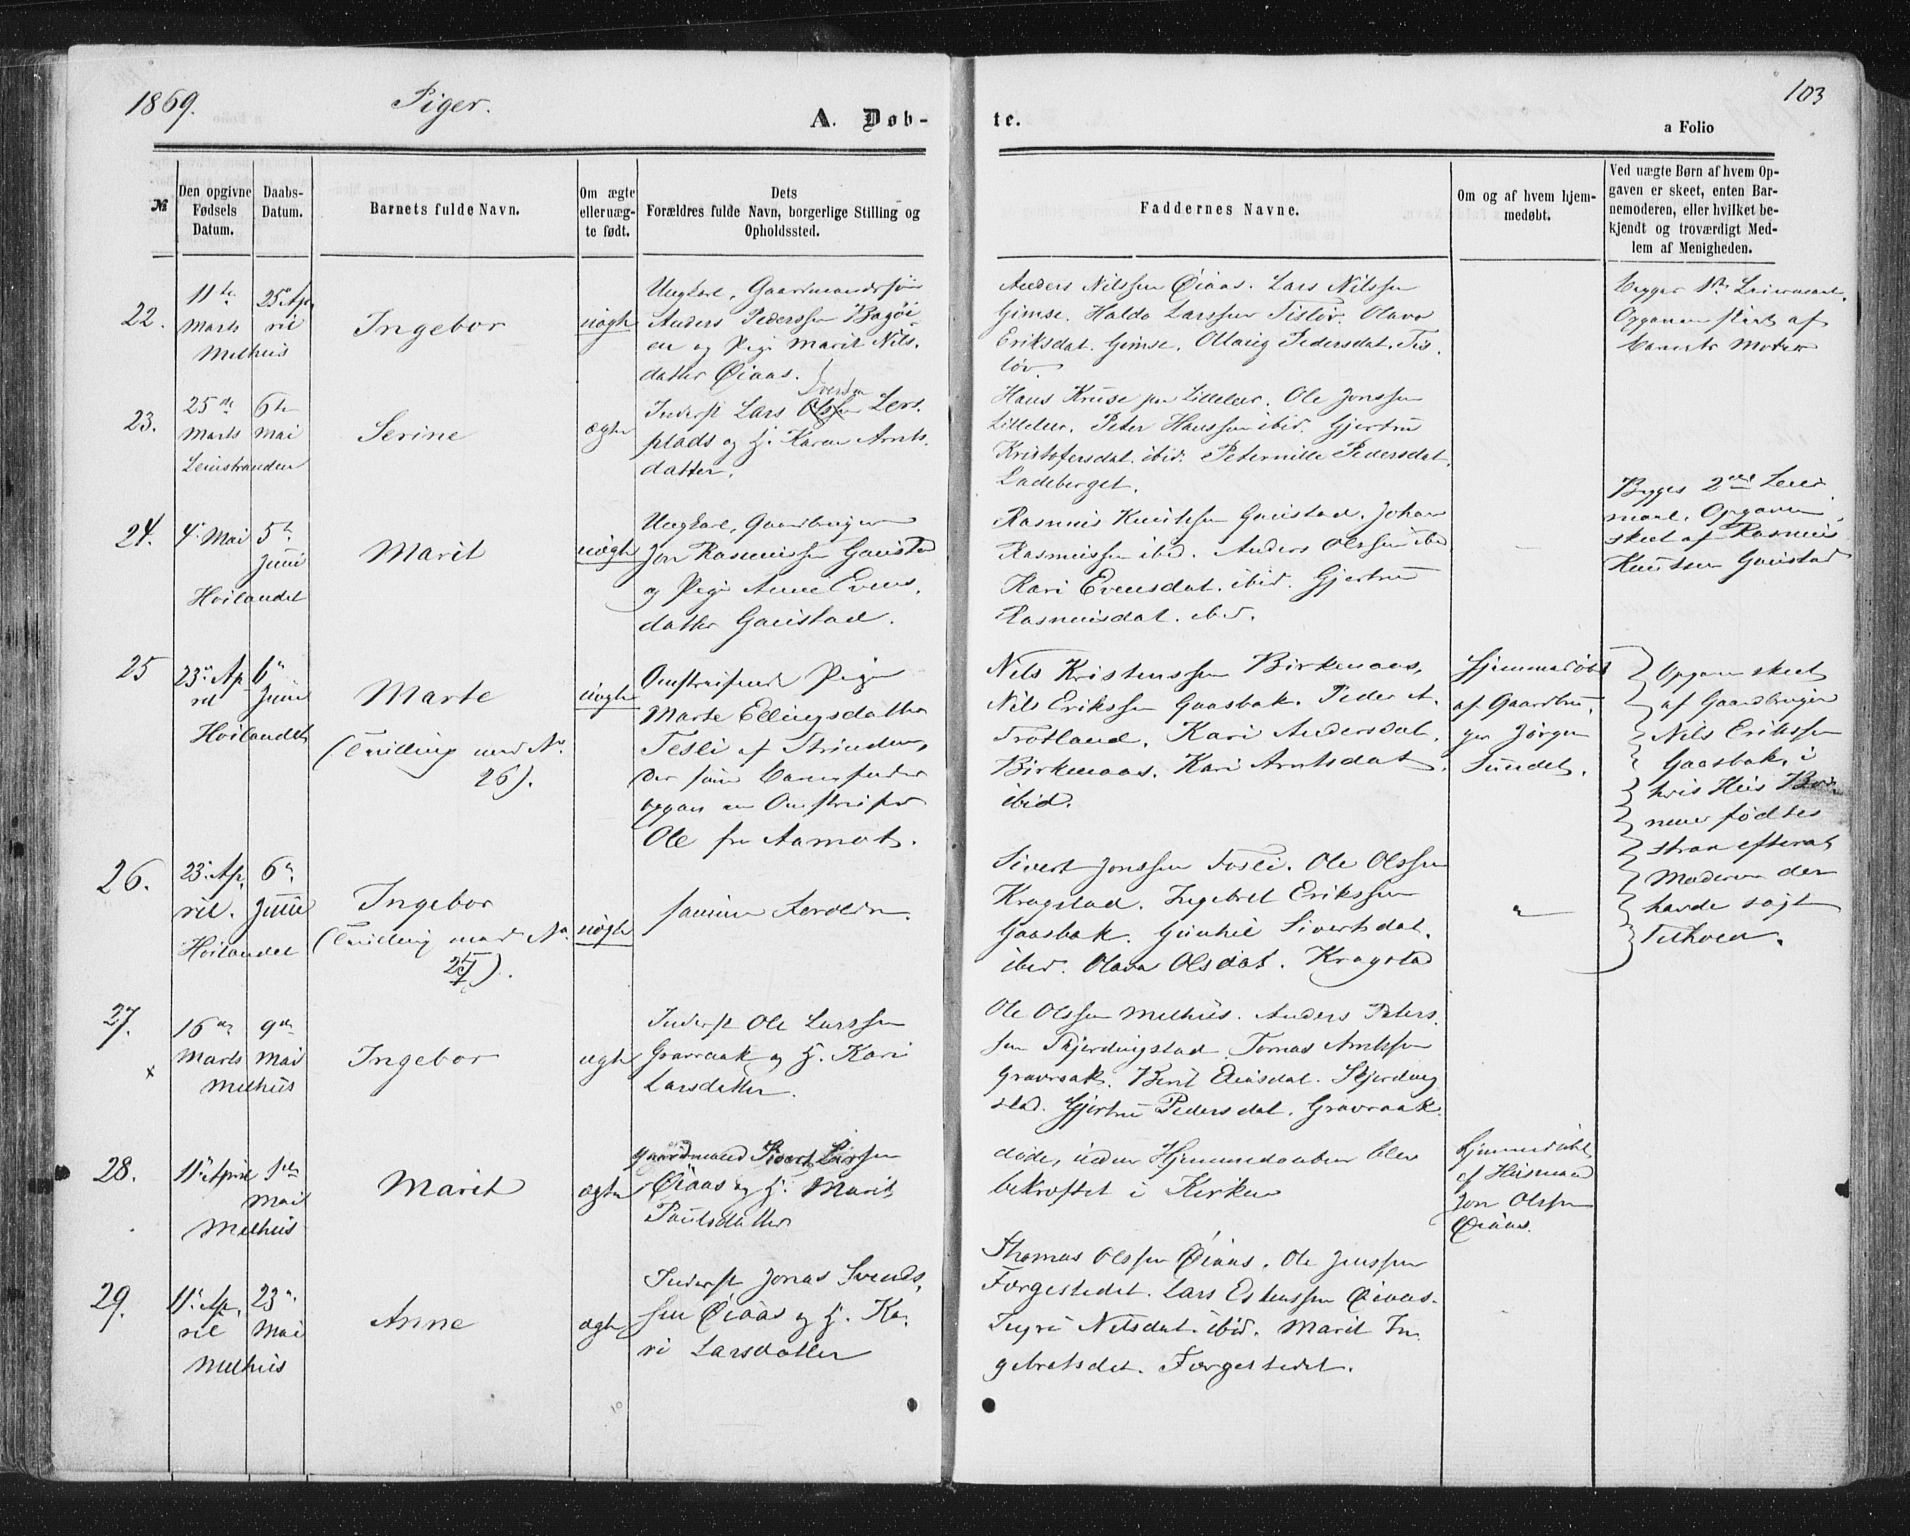 1869.
Piger.
A. Døb-
te.
103
a Folio
№
Den opgivne
Fødsels
Datum.
Daabs-
Datum.
Barnets fulde Navn.
Om ægte
eller uæg-
te født.
Dets
Forældres fulde Navn, borgerlige Stilling og
Opholdssted.
Faddernes Navne.
Om og af hvem hjem-
medøbt.
Ved uægte Børn af hvem Op-
gaven er skeet, enten Bar-
nemoderen, eller hvilket be-
kjendt og troværdigt Med-
lem af Menigheden.
22.
11te
Marts
25de Ap
ril
Melhus
Ingebor
uægte
Ungkarl, Gaardmandssøn
Anders Pederssen Bagøi
en og Pige Marit Nils
datter Øiaas.
Anders Nilssen Øiaas. Lars Nilssen
Gimse. Haldo Larssen Tisløv. Olava
Eriksdat. Gimse. Ollaug Pedersdat. Tis
løv.
Begges 1ste Leiermaal.
Opgaven skeet af
Barnets Moder
23.
25de
Marts
6te
Mai
Leinstranden
Serine
ægte
Inderst Lars Olssen Lers
plads og H. Karen Arnts
datter.
Hans Kruse paa Lilleler. Ole Jonssen
Lilleler. Peter Hanssen ibid. Gjertru
Kristofersdat. ibid. Peternille Pedersdat.
Ladeberget.
24.
4. Mai
5te
Juni
Hoilandet
Marit
uægte
Ungkarl, Gaardbruger
Jon Rasmussen Gaustad
og Pige Anne Evens
datter Gaustad.
Rasmus Knutssen Gaustad. Johan
Rasmussen ibid. Anders Olssen ibid
Kari Evensdat. ibid. Gjertru
Rasmusdat. ibid.
Begges 2det Leier
maal. Opgaven
skeet af Rasmus
Knutsen Gaustad
25
23de Ap
ril
6te
Juni
Hoilandet
Marte
(Tvilling med No
26).
uægte
Omstreifende Pige
Marte Ellingsdatter
Tesli af Strinden,
der som Barnefader
opgav en Omstreifer
Ole fra Aamot.
Nils Kristenssen Birkenaas,
Nils Erikssen Gaasbak. Peder A.
Trotland. Kari Andersdat.
Birkenaas. Kari Arntsdat
ibid.
Hjemmedøbt
af Gaardbru
ger Jørgen
Sundet.
Opgaven skeet
af Gaardbruger
Nils Erikssen
Gaasbak, i
hvis Huus Bør
nene fødtes
strax efterat
Moderen der
havde søgt
Tilhold.
26.
23. Ap.
ril.
6te
Juni
Hoilandet
Ingebor
(Tvilling med No
25).
uægte
samme Forældre.
Sivert Jonssen Fosli. Ole Olssen
Kragstad. Ingebret Erikssen
Gaasbak. Gunhil Sivertsdat.
ibid. Olava Olsdat. Kragstad
27.
x
16de
Marts
9de
Mai
Melhus
Ingebor
ægte
Inderst Ole Larssen
Gravraak og H. Kari
Larsdatter.
Ole Olssen Melhus. Anders Peters
sen Skjerdingstad. Tomas Arntssen
Gravraak. Berit Eriksdat. Skjerding
stad. Gjertru Pedersdat. Gravraak.
28.
11te April
1ste
Mai
Melhus
Marit
ægte
Gaardmand Sivert Larssen
Øiaas og H. Marit
Paulsdatter
døde, uden Hjemmedaaben blev
bekræftet i Kirken
hjemmedøbt
af Husmand
Jon Olssen
Øiaas.
29.
11te Ap.
ril
23de
Mai
Melhus
Anne
ægte
Inderst Jonas Svends
sen Øiaas og H. Ka
ri Larsdatter
Thomas Olssen Øiaas. Ole Jenssen
Forgestedet. Lars Estenssen Øiaas.
Ingri Nilsdat. ibid. Marit In
gebretsdat. Forgestedet.